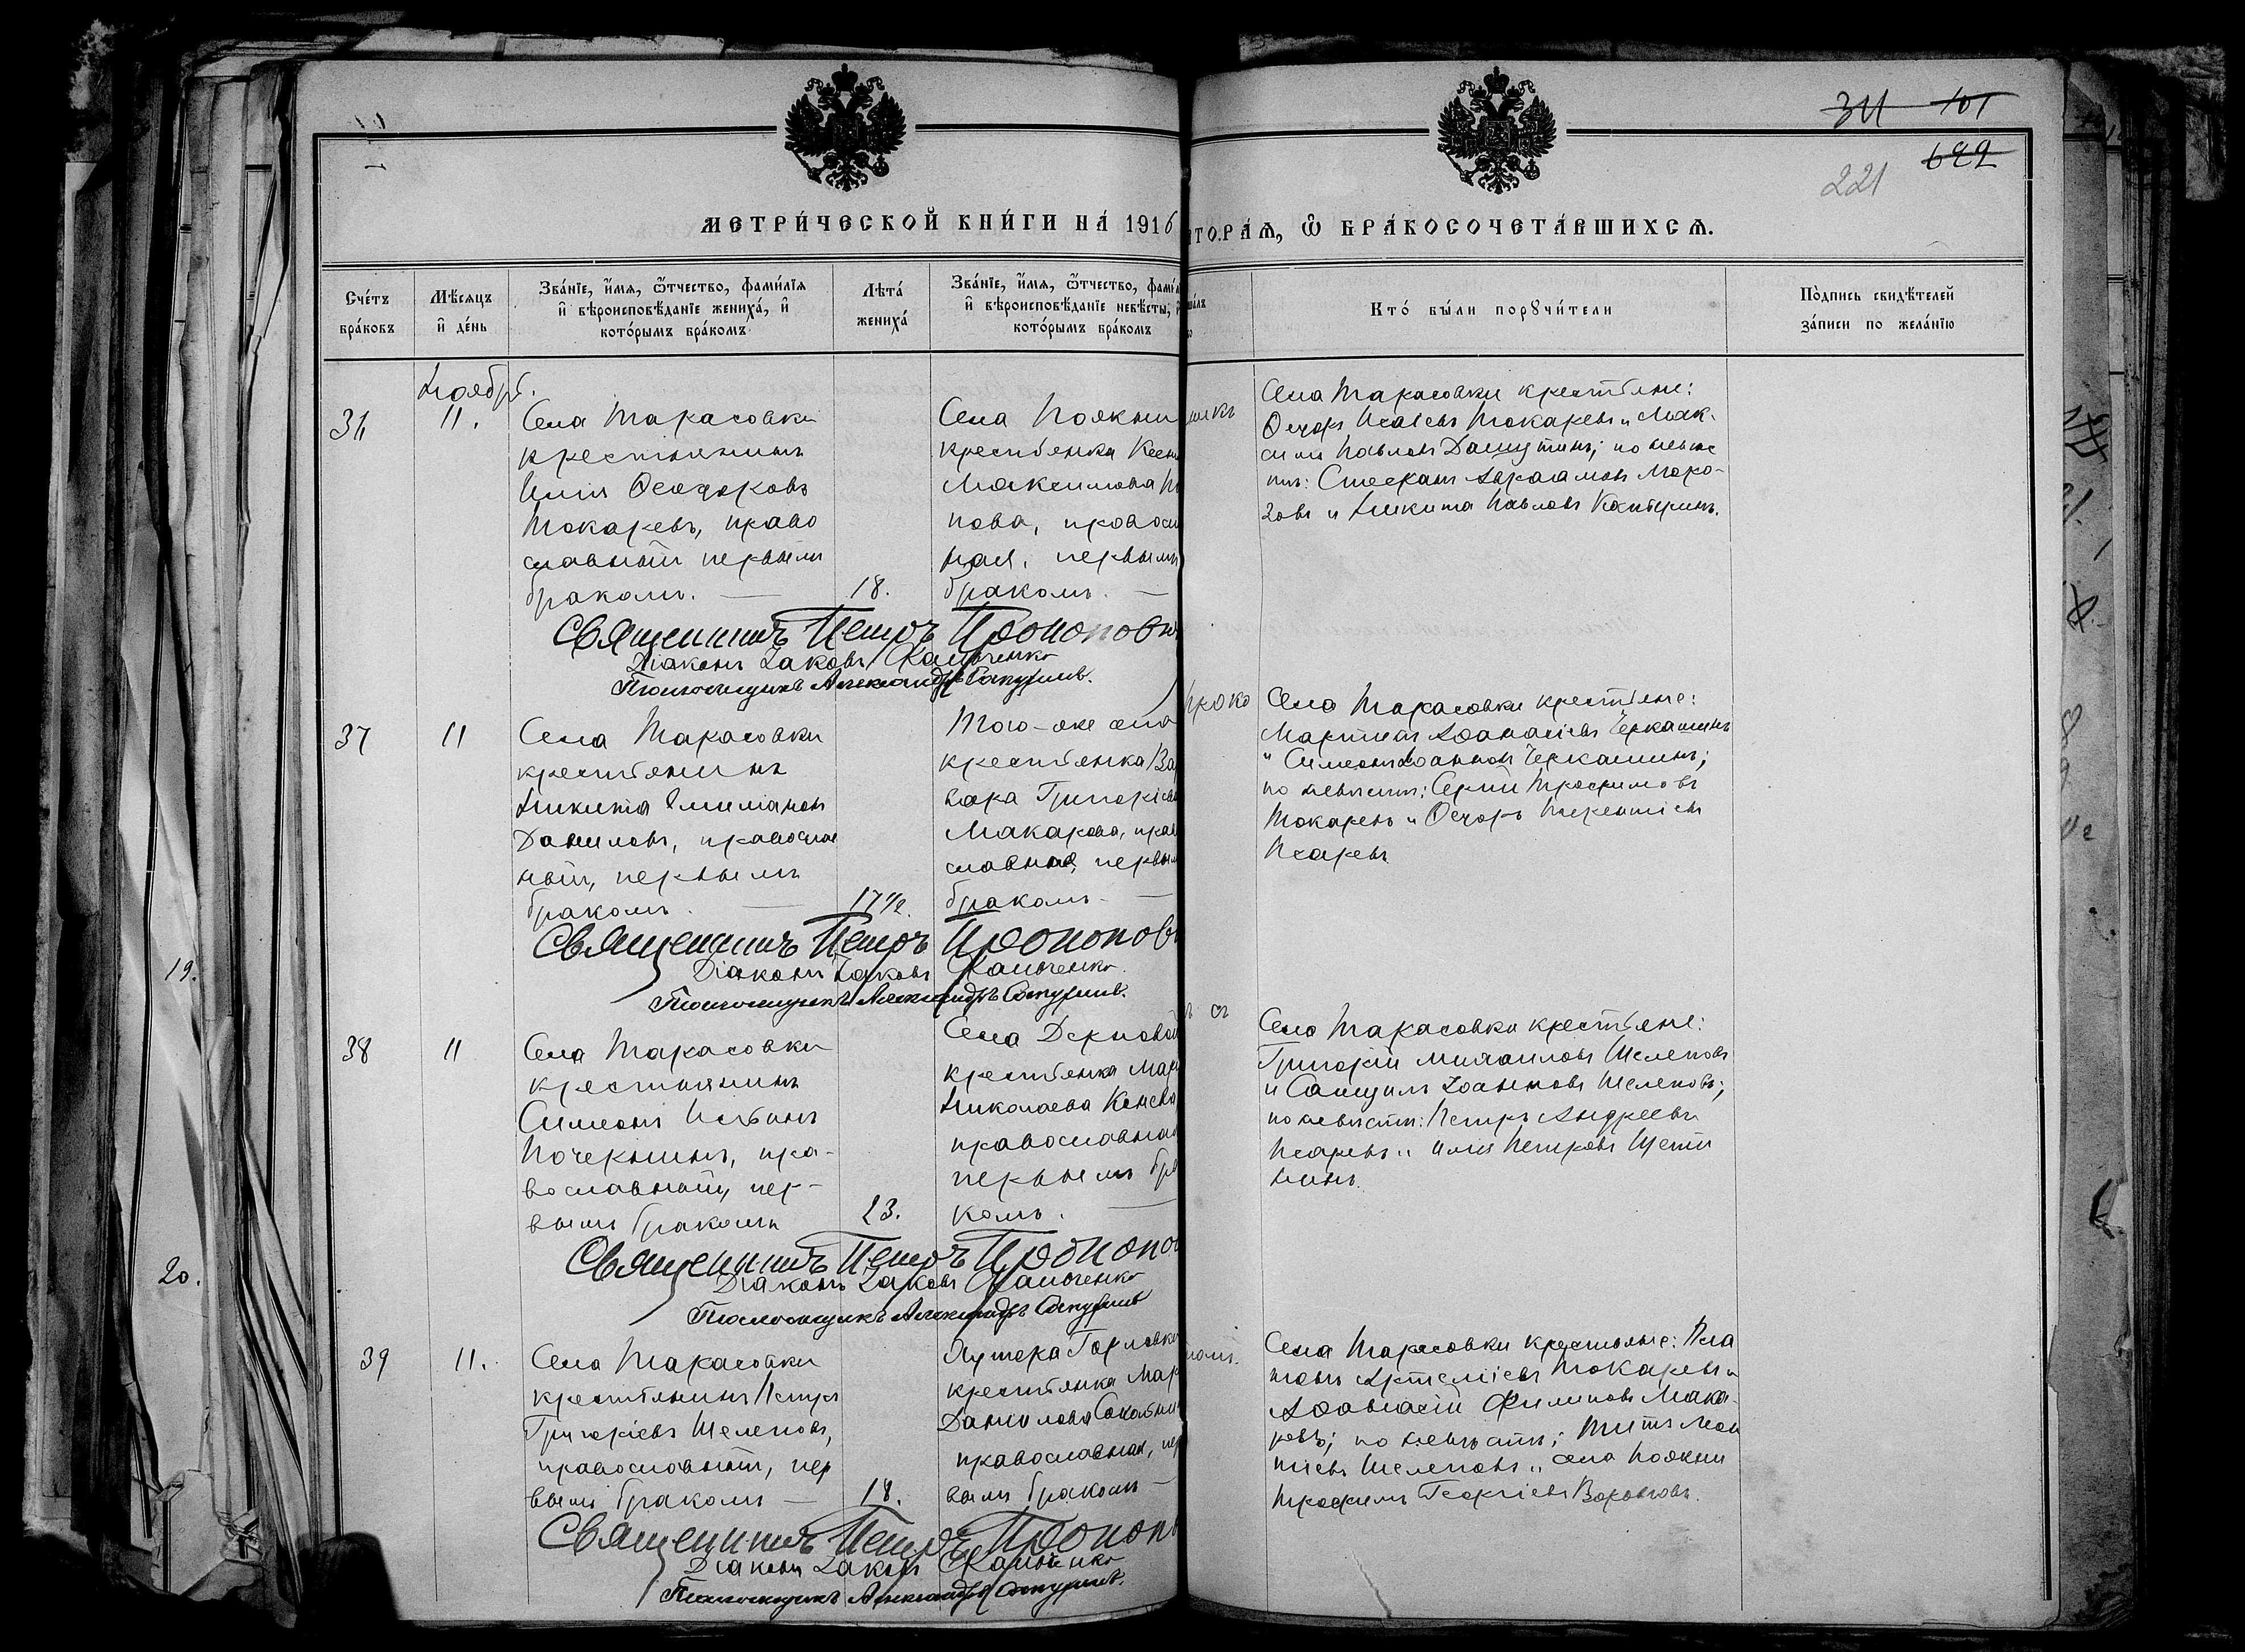 311 101
692
221
МЕТРИ́ЧЕСКОЙ КНИ́ГИ НА́ 1916
ТОРА́Ѧ, Ѿ БРА́КОСОЧЕТА́ВШИХСѦ.
Сче́тъ бра́ковъ
Мѣ́сяцъ и҆ де́нь
Зва́нїе, и҆́мѧ, ѻ҆́тчество, фами́лїѧ
и҆ вѣроисповѣ́данїе жениха́, и҆
кото́рымъ бра́комъ
Лѣта́ жениха́
Зва́нїе, и҆́мѧ, ѻ҆́тчество, фами́
и҆ вѣроисповѣ́данїе невѣ́сты,
кото́рымъ бра́комъ
Кто́ бы́ли порꙋчи́тели
По́дпись свидѣ́телей
за́писи по жела́нїю
Ноябрь.
36
11.
Села Тарасовки
крестьянинъ
Илія Ѳеодоровъ
Токаревъ, право
славный первымъ
бракомъ.
18.
Села Поякни
крестьянка Ксен
Максимова
пова, правосл
ная, первымъ
бракомъ.
Села Тарасовки крестьяне:
Ѳеодоръ Исаіевъ Токаревъ и Мак-
симъ Павловъ Дашутинъ; по невѣс
тѣ: Стефанъ Авраамовъ Моро-
зовъ и Никита Павловъ Кантеринъ.
Священникъ Петръ Прокопов
Діаконъ Іаковъ
Псаломщикъ Александръ
37
11
Села Тарасовки
крестьянинъ
Никита Емиліановъ
Даниловъ, православ
ный, первымъ
бракомъ.
17½.
Того-же села
крестьянка Вар
вара Григоріева
Макарова, прав
славная, первым
бракомъ.
Села Тарасовки крестьяне:
Мартинъ Аѳанасіевъ Черкашинъ
и Симеонъ Іоанновъ Черкашинъ;
по невѣстѣ: Сергій Трофимовъ
Токаревъ и Ѳеодоръ Терентіевъ
Псаревъ
Священникъ Петръ Прокопов
Діаконъ Іаковъ
Псаломщикъ Александръ
38
11
Села Тарасовки
крестьянинъ
Симеонъ Исаінъ
Почернинъ, пра-
вославный, пер-
вымъ бракомъ
23.
Села Дерновой
крестьянка Мар
Николаева Конева
православная
первымъ бра
комъ.
Села Тарасовки крестьяне:
Григорій Михаиловъ Шелеповъ
и Самуилъ Іоанновъ Шелеповъ;
по невѣстѣ: Петръ Андреевъ
Псаревъ и Илія Петровъ Щети
нинъ.
Священникъ Петръ Прокопов
Діаконъ Іаковъ
Псаломщикъ Александръ
39
11.
Села Тарасовки
крестьянинъ Петръ
Григоріевъ Шелеповъ,
православный, пер
вымъ бракомъ
18.
Хутора Горловки
крестьянка Мар
Данилова
православная, пер
вымъ бракомъ
Села Тарасовки крестьяне: Пла
тонъ Артеміевъ Токаревъ и
Аѳанасій Филиповъ Мака-
ровъ; по невѣстѣ: Титъ
Шелеповъ и села Поякни
Трофимъ Георгіевъ Воронковъ.
Священникъ Петръ Прокоп
Діаконъ Іаковъ
Псаломщикъ Александръ
19.
20.